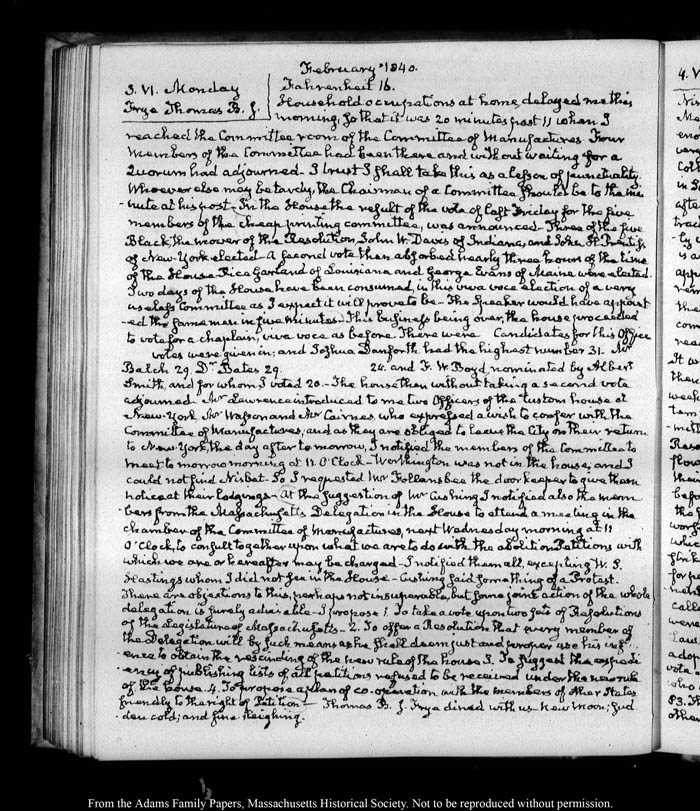 February 1840.
3. VI. Monday
Fahrenheit 16.
Frye Thomas B. J.
Household occupations at home, delayed me this
morning, so that it was 20 minutes past 11 when I
reached the Committee room of the Committee of Manufactures. Four
members of the Committee had been there and without waiting for a
Quorum had adjourned. I trust I shall take this as a lesson of punctuality.
Whoever else may be tardy, the Chairman of a Committee should be to the mi
-nute at his post. In the House the result of the vote of last Friday for the five
members of the cheap printing committee, was announced. Three of the five
Black the mover of the Resolution, John W. Davis of Indiana, and John H. Prentiss
of New-York elected. A second vote then absorbed nearly three hours of the time
of the House. Rice Garland of Louisiana and George Evans of Maine were elected.
Two days of the House have been consumed, in this viva voce election of a very
useless Committee as I expect it will prove to be. The Speaker would have appoint
-ed the same men in five minutes. This business being over, the house proceeded
to vote for a chaplain, viva voce as before. There were Candidates for this Office
votes were given in; and Joshua Danforth had the highest number 31. Mr
Balch 29. Dr Bates 29. 24. and F. W. Boyd, nominated by Albert
Smith, and for whom I voted 20. The house then without taking a second vote
adjourned. Mr Lawrence introduced to me two Officers of the custom house at
New-York Mr Wasson and Mr Cairnes, who expressed a wish to confer with the
Committee of Manufactures; and as they are obliged to leave the City on their return
to New-York, the day after to morrow, I notified the members of the Committee to
meet to morrow morning at 11. O'Clock. Worthington was not in the house, and I
could not find Nisbet. So I requested Mr Follansbee the door keeper to give them
notice at their Lodgings. At the suggestion of Mr Cushing I notified also the mem
bers from the Massachusetts Delegation in the House to attend a meeting in the
chamber of the Committee of Manufactures, next Wednesday morning at 11
O'Clock, to consult together upon what we are to do with the abolition Petitions with
which we are or hereafter may be charged. I notified them all, excepting W. S.
Hastings whom I did not see in the House. Cushing said something of a Protest.
There are objections to this, perhaps not insuperable, but some joint action of the whole
delegation is surely advisable. I propose 1. To take a vote upon two sets of Resolutions
of the Legislature of Massachusetts. 2. To offer a Resolution that every member of
the Delegation will by such means as he shall deem just and proper use his inf
ence to obtain the rescinding of the new rule of the house 3. To suggest the expedi
-ency of publishing lists of all petitions refused to be received under the new rule
of the house. 4. To propose a plan of co-operation with the members of other States
friendly to the right of Petition. Thomas B. J. Frye dined with us. New Moon; sud
den cold; and fine sleighing.
From the Adams Family Papers, Massachusetts Historical Society. Not to be reproduced without permission.